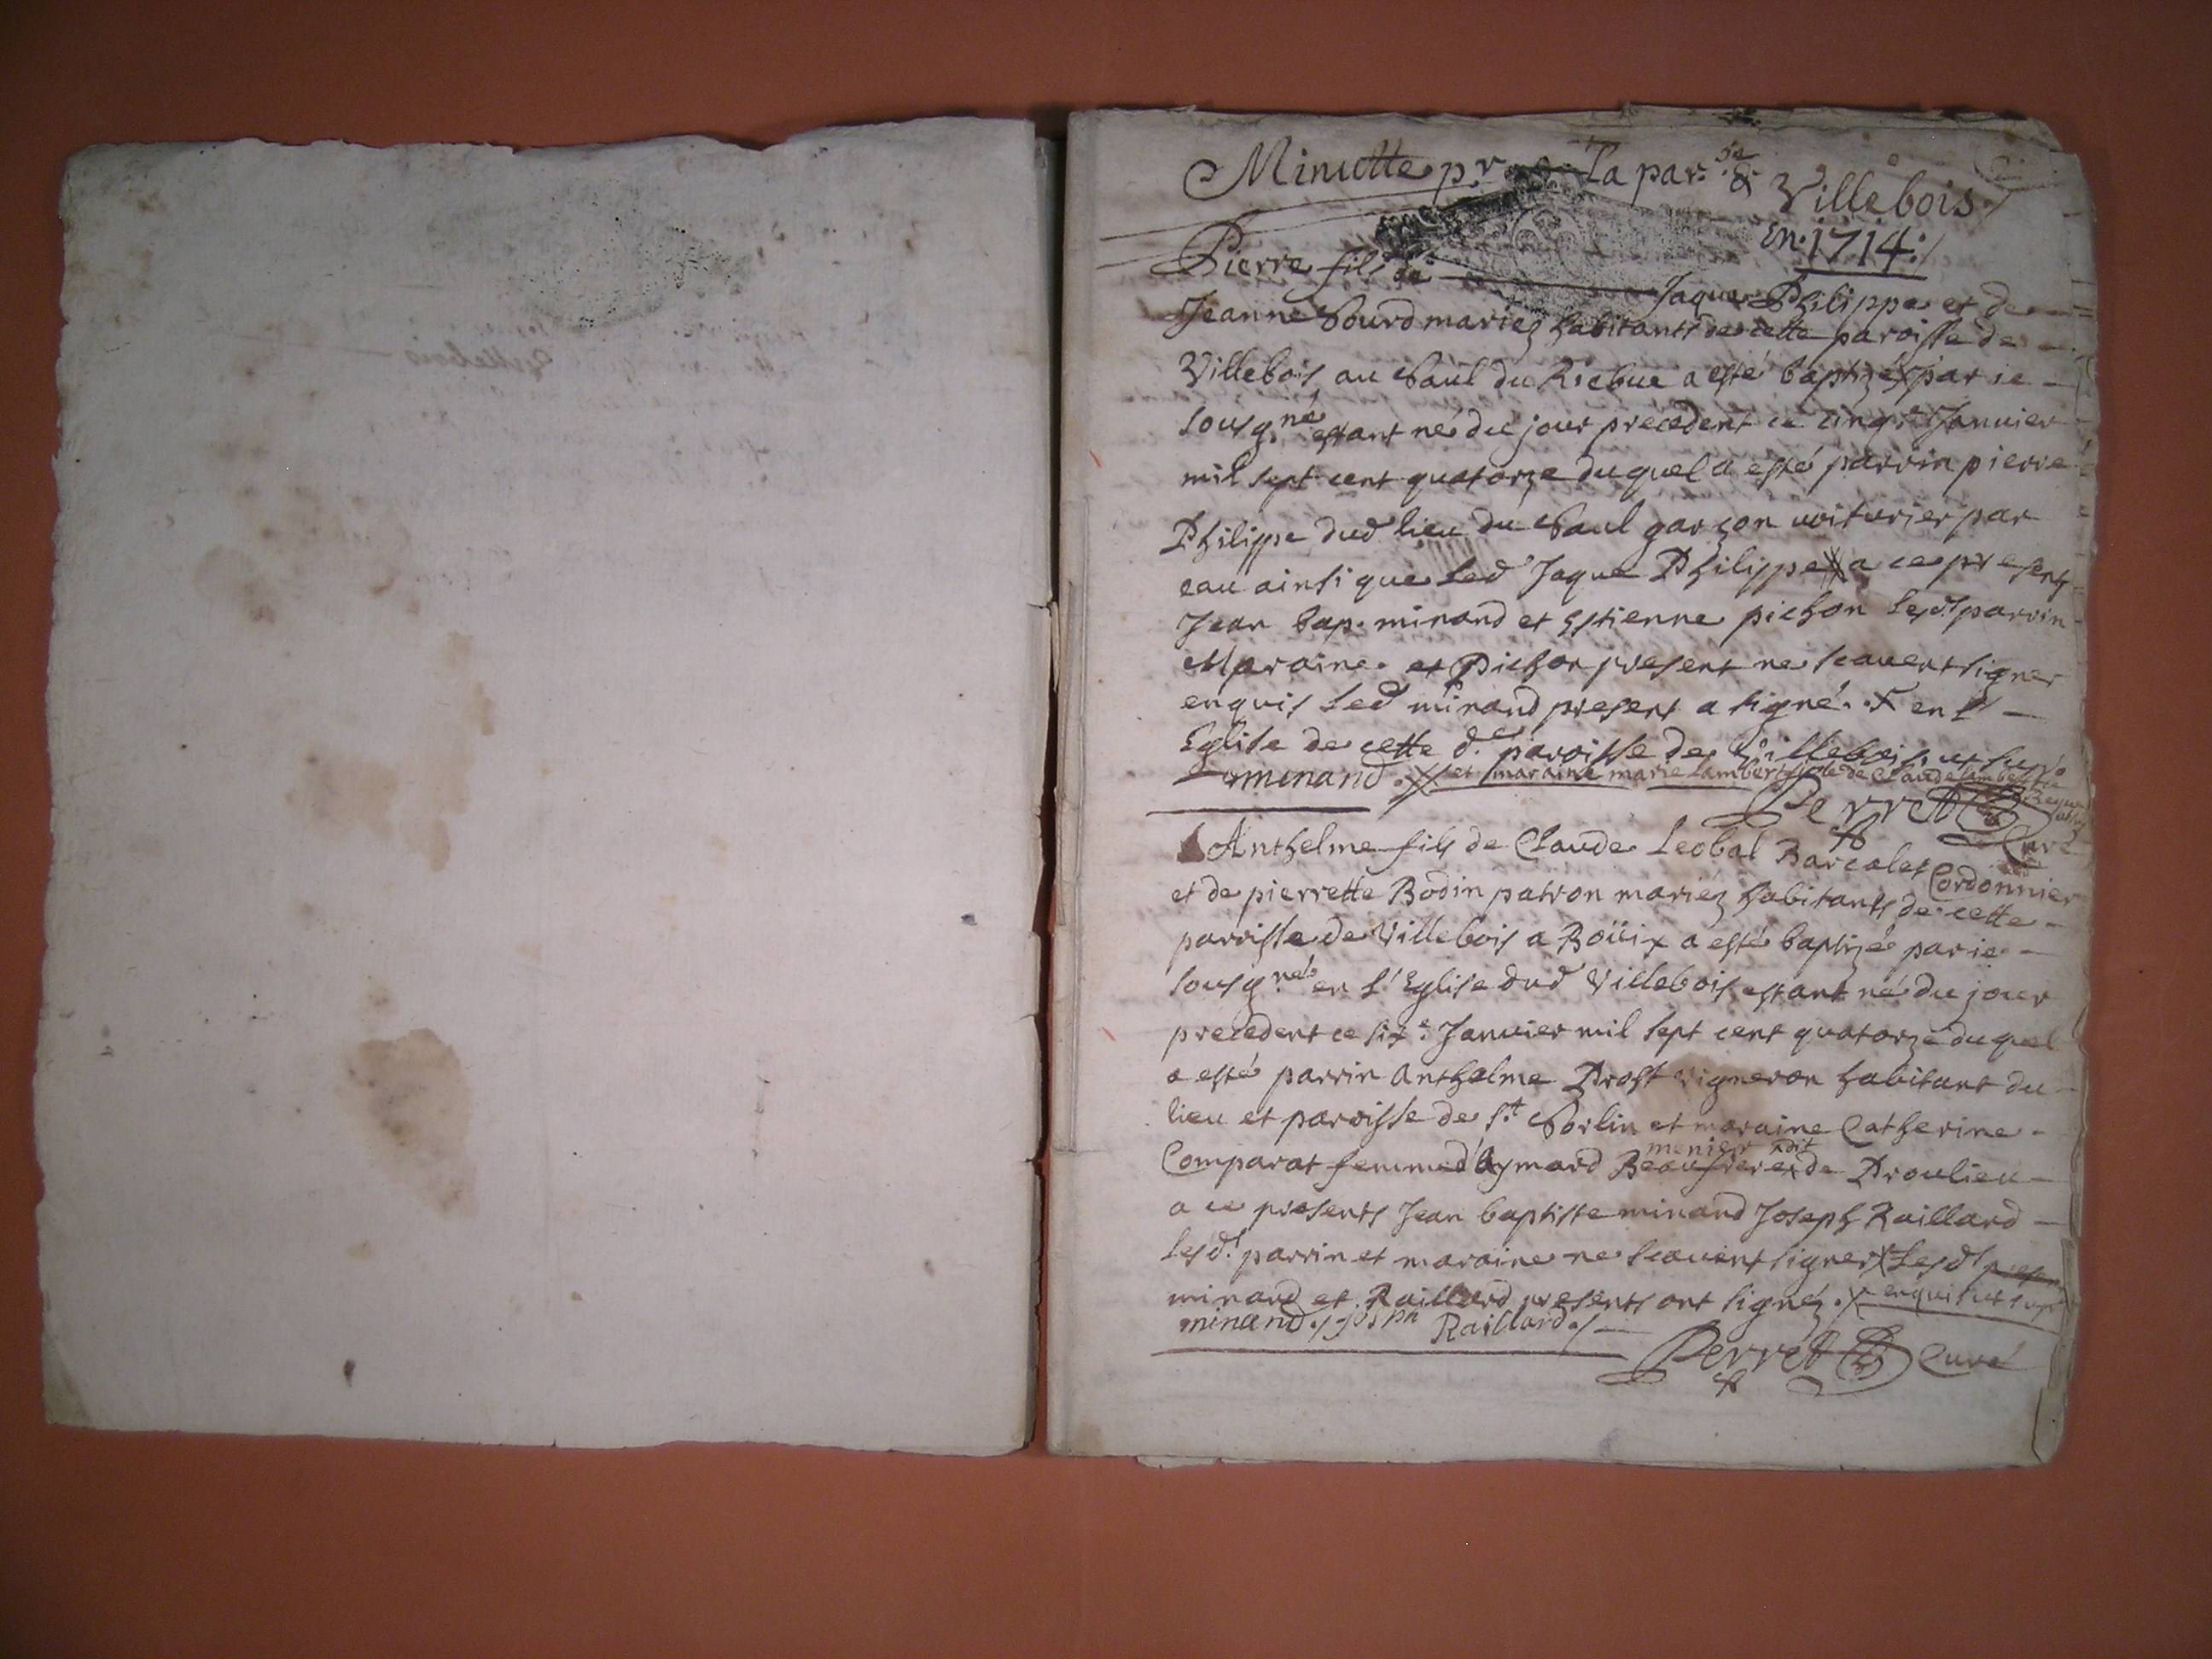 Minutte pr. la par.se de Villebois
en 1714
Pierre fils de Jaque Philippe et de
Jeanne Sourd mariez habitants de cette paroisse de
Villebois au Saul du a esté baptizé x par ie
sousgné estant né du jour precedent ce cinqe Janvier
mil sept cent quatorze duquel a esté parrin pierre
Philippe dud lieu du Saul garçon voiturier par
eau ainsi que led Jaque Philippe a ce presents
Jean bap. minand et Estienne pichon lesds parrin
Maraine et Pichon present ne scavent signer
enquis led minand present a signé. x en l'
Eglise de cette d.e paroisse de Villebois
minand. et maraine marie Lambert de Claude Lambert
Perret
Curé
Anthelme fils de Claude Leobal Barcalet Cordonnier
et de pierrette Bodin patron mariez habitants de cette
paroisse de Villebois a Boüix a esté baptizé par ie
sousgné en l'Eglise dud Villebois estant né du jour
precedent ce sixe Janvier mil sept cent quatorze duquel
a esté parrin Anthelme Drost vigneron habitant du
lieu et paroisse de St Sorlin et maraine Catherine
menier dit
Comparat femme d'Aymard Beaufrere de Droulieu
a ce presents Jean baptiste minand Joseph Raillard
lesds parrin et maraine ne scavent signer x lesds
minand et Raillard presents ont signéz. x enquis
minand. Raillard
Perret Curé